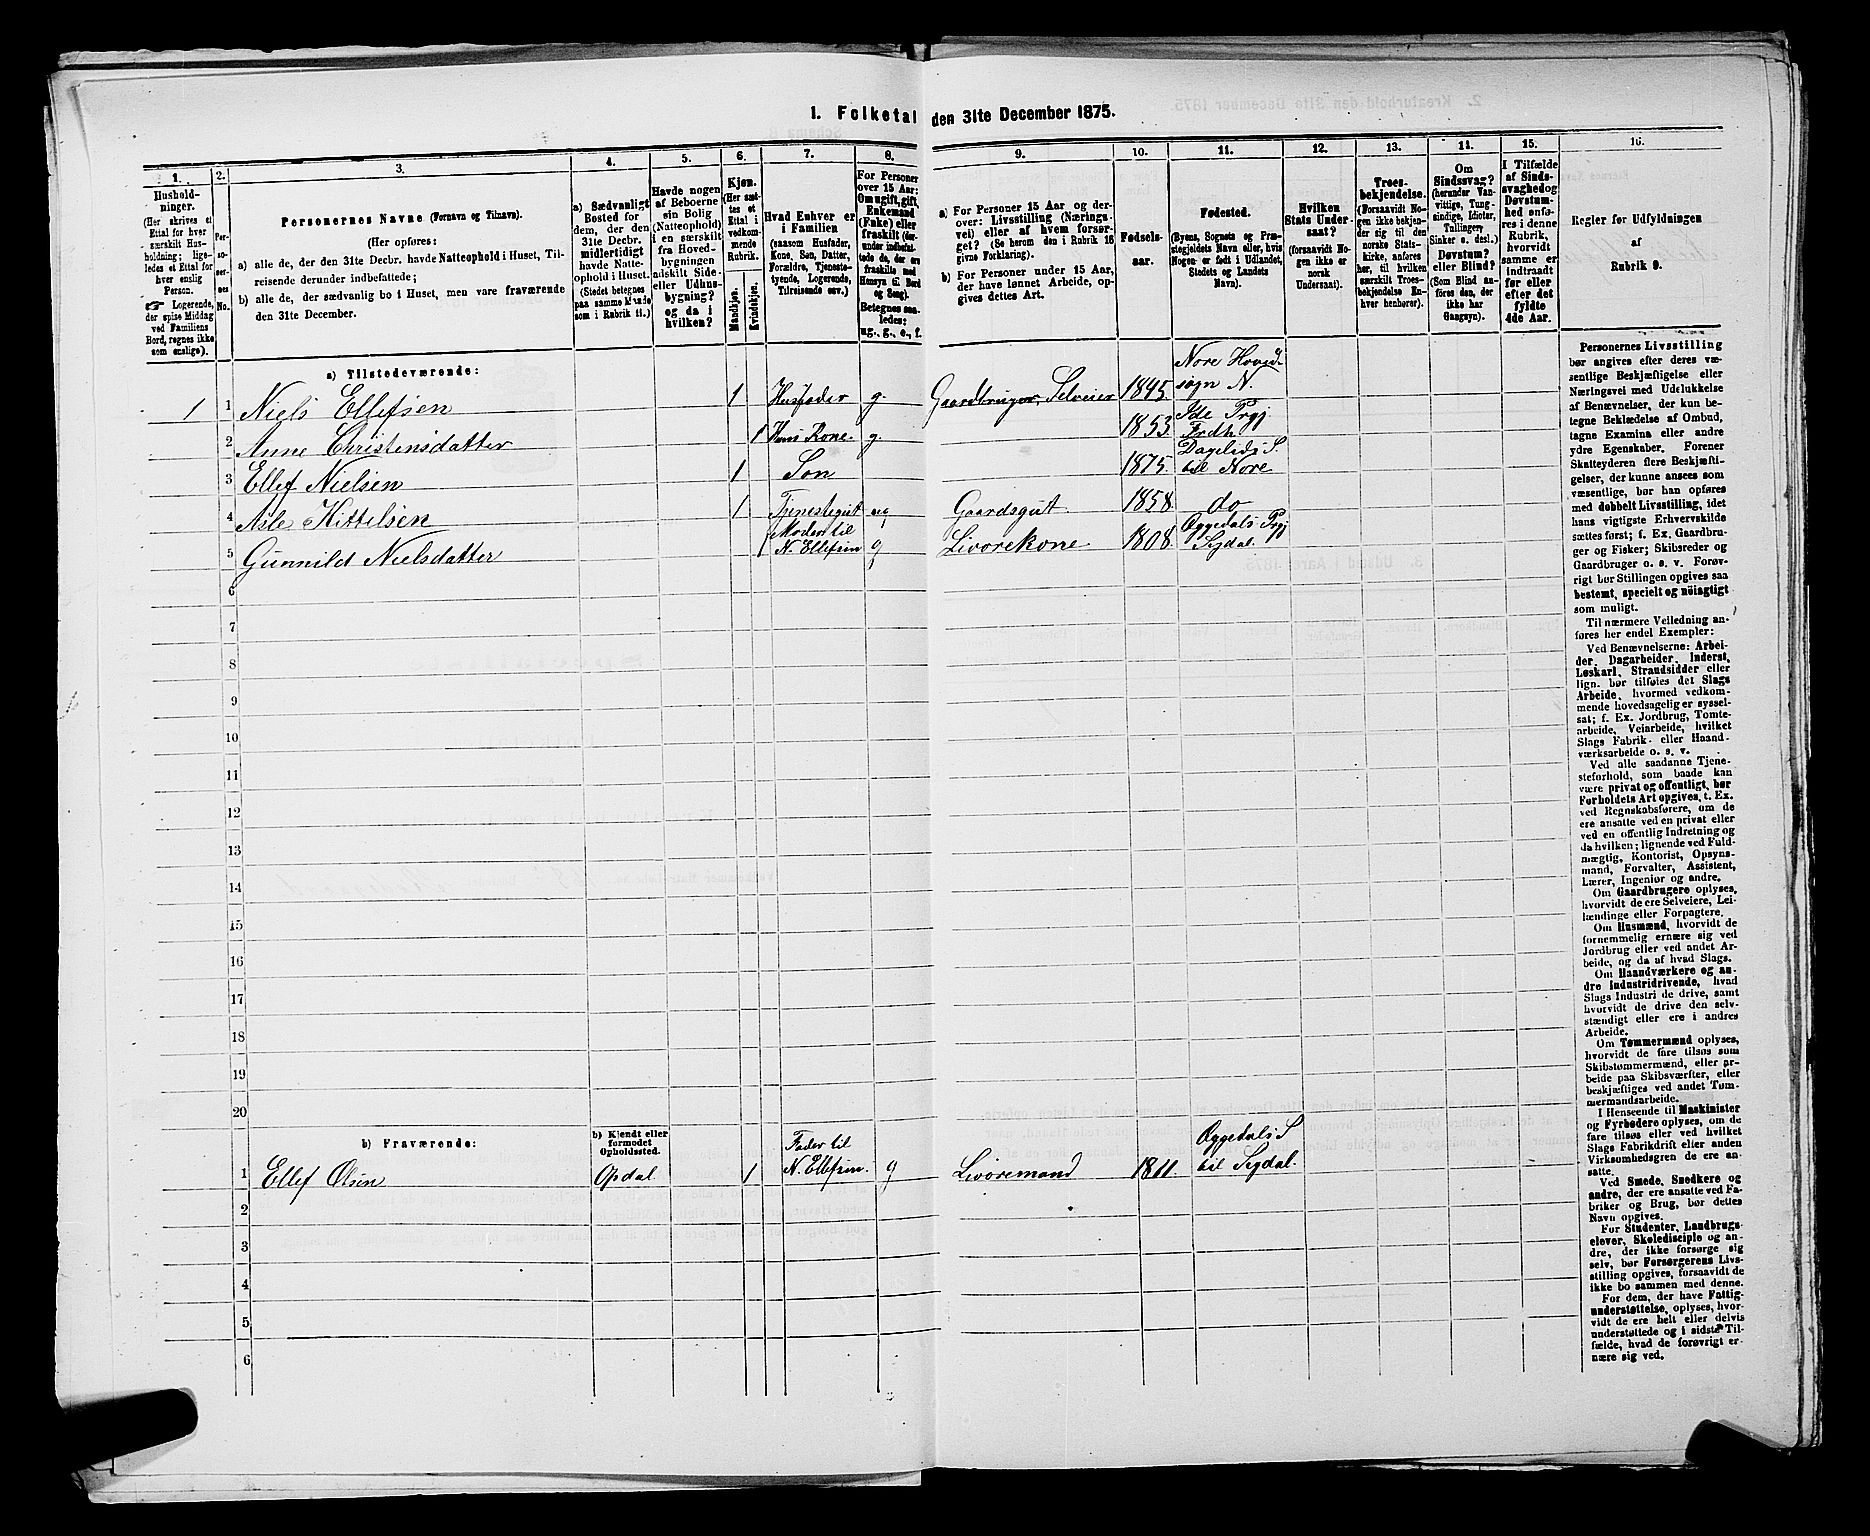 1. Folketal den 31te December 1875.
1. 2. 3. 4. 5. 6. 7. 8. 9. 10. 11. 12. 13. 14. 15. 16.
Hushold-
ninger.
(Her skrives et
Ettal for hver
særskilt Hus-
holdning; lige-
ledes et Ettal for
hver enslig
Person.
☞ Logerende,
der spise Middag
ved Familiens
Bord, regnes ikke
som enslige).
Per-
so-
ner-
nes
No.
Personernes Navne (Fornavn og Tilnavn).
(Her opføres:
a) alle de, der den 31te Decbr. havde Natteophold i Huset, Til-
reisende derunder indbefattede;
b) alle de, der sædvanlig bo i Huset, men vare fraværende
den 31te December.
a) Sædvanligt
Bosted for
dem, der den
31te Decbr.
midlertidigt
havde Natte-
ophold i Huset.
(Stedet betegnes
paa samme Maade
som i Rubrik 11.)
Havde nogen
af Beboerne
sin Bolig
(Natteophold)
i en særskilt
fra Hoved-
bygningen
adskilt Side-
eller Udhus-
bygning?
og da i
hvilken?
Kjøn.
(Her sæt-
tes et
Ettal i
vedkom-
mende
Rubrik.
Mandkjøn.
Kvindekjøn.
Hvad Enhver er
i Familien
(saasom Husfader,
Kone, Søn, Datter,
Forældre, Tjeneste-
tyende, Logerende,
Tilreisende osv.)
For Personer
over 15 Aar:
Om ugift, gift,
Enkemand
(Enke) eller
fraskilt (der-
under indbefat-
tede de, der ere
fraskilte med
Hensyn til Bord
og Seng).
Betegnes saa-
ledes:
ug., g., e., f.
a) For Personer 15 Aar og der-
over: Livsstilling (Nærings-
vei) eller af hvem forsør-
get? (Se herom den i Rubrik 16
givne Forklaring).
b) For Personer under 15 Aar,
der have lønnet Arbeide, op-
gives dettes Art.
Fødsels-
aar.
Fødested.
(Byens, Sognets og Præ-
stegjeldets Navn eller, hvis
Nogen er født i Udlandet,
Stedets og Landets
Navn).
Hvilken
Stats Under-
saat?
(forsaavidt No-
gen ikke er
norsk
Undersaat).
Troes-
bekjendelse.
(Forsaavidt No-
gen ikke bekjen-
der sig til den
norske Stats-
kirke, anføres
her, til hvilken
særskilt Troes-
bekjendelse En-
hver henhører).
Om
Sindssvag?
(herunder Van-
vittige, Tung-
sindige, Idioter,
Tullinger,
Sinker o. desl.)
Døvstum?
eller Blind?
(Som Blind an-
føres den, der
ikke har
Gangsyn).
I Tilfælde
af Sinds-
svaghed og
Døvstum-
hed anfø-
res i denne
Rubrik,
hvorvidt
samme er
indtraadt
før eller
efter det
fyldte
4de Aar.
Regler for Udfyldningen
af
Rubrik 9.
a) Tilstedeværende:
1 1 Niels Ellefsen 1 Husfader g. Gaardbruger, Selveier 1845. Nore Hoved-
sogn N.
2 Anne Christensdatter 1 Hans Kone. g. 1853. Ide Prgj.
Frdh.
3 Ellef Nielsen 1 Søn 1875. Dagelids S.
til Nore
4 Asle Kittelsen 1 Tjenestegut ug Gaardsgut 1858. do
5 Gunnild Nielsdatter 1 Moder til
N. Ellefsen g Livørekone. 1808. Oggedals Prgj
Sigdal.
6
7
8
9
10
11
12
13
14
15
16
17
18
19
20
b) Fraværende: b) Kjendt eller
formodet
Opholdssted.
1 Ellef Olsen Opdal. 1 Fader til
N. Ellefsen. g Livøremand 1811. Oggedals S
til Sigdal.
2
3
4
5
6
Personernes Livsstilling
bør angives efter deres væ-
sentlige Beskjæftigelse eller
Næringsvei med Udelukkelse
af Benævnelser, der kun be-
tegne Beklædelse af Ombud,
tagne Examina eller andre
ydre Egenskaber. Forener
Skatteyderen flere Beskjæfti-
gelser, der kunne ansees som
væsentlige, bør han opføres
med dobbelt Livsstilling, idet
hans vigtigste Erhvervskilde
sættes først; f. Ex. Gaardbru-
ger og Fisker; Skibsreder og
Gaardbruger o. s. v. Forøv-
rigt bør Stillingen opgives saa
bestemt, specielt og nöiagtigt
som muligt.
Til nærmere Veiledning an-
føres her endel Exempler:
Ved Benævnelserne: Arbei-
der, Dagarbeider, Inderst,
Løskarl, Strandsidder eller
lign. bør tilføies det Slags
Arbeide, hvormed vedkom-
mende hovedsagelig er syssel-
sat; f. Ex. Jordbrug, Tomte-
arbeide, Veiarbeide, hvilket
Slags Fabrik- eller Haand-
værksarbeide o. s. v.
Ved alle saadanne Tjene-
steforhold, som baade kan
være privat og offentligt, bør
Forholdets Art opgives, t. Ex.
ved Regnskabsførere, om de
ere ansatte ved en privat eller
ved en offentlig Indretning og
da hvilken; lignende ved Fuld-
mægtig, Kontorist, Opsyns-
mand, Forvalter, Assistent,
Lærer, Ingeniør og andre.
Om Gaardbrugere oplyses,
hvorvidt de ere Selveiere, Lei-
lændinge eller Forpagtere.
Om Husmænd, hvorvidt de
fornemmelig ernære sig ved
Jordbrug eller ved andet Ar-
beide, og da af hvad Slags.
Om Haandværkere og an-
dre Industridrivende, hvad
Slags Industri de drive, samt
hvorvidt de drive den selv-
stændigt eller ere i andres
Arbeide.
Om Tømmermænd oplyses,
hvorvidt de fare tilsøs som
Skibstømmermænd, eller ar-
beide paa Skibsværfter, eller
beskjæftiges ved andet Tøm-
mermandsarbeide.
I Henseende til Maskinister
og Fyrbødere oplyses, om de
fare tilsøs eller ved hvilket
Slags Fabrikdrift eller anden
Virksomhedsgren de ere an-
satte.
Ved Smede, Snedkere og
andre, der ere ansatte ved Fa-
briker og Brug, bør dettes
Navn opgives.
For Studenter, Landbrugs-
elever, Skoledisciple og an-
dre, der ikke forsørge sig
selv, bør Forsørgerens Livs-
stilling opgives, forsaavidt de
ikke bo sammen med denne.
For dem, der have Fattig-
understøttelse, oplyses, hvor-
vidt de ere helt eller delvis
understøttede og i sidste Til-
fælde, hvad de forøvrigt er-
nære sig ved.